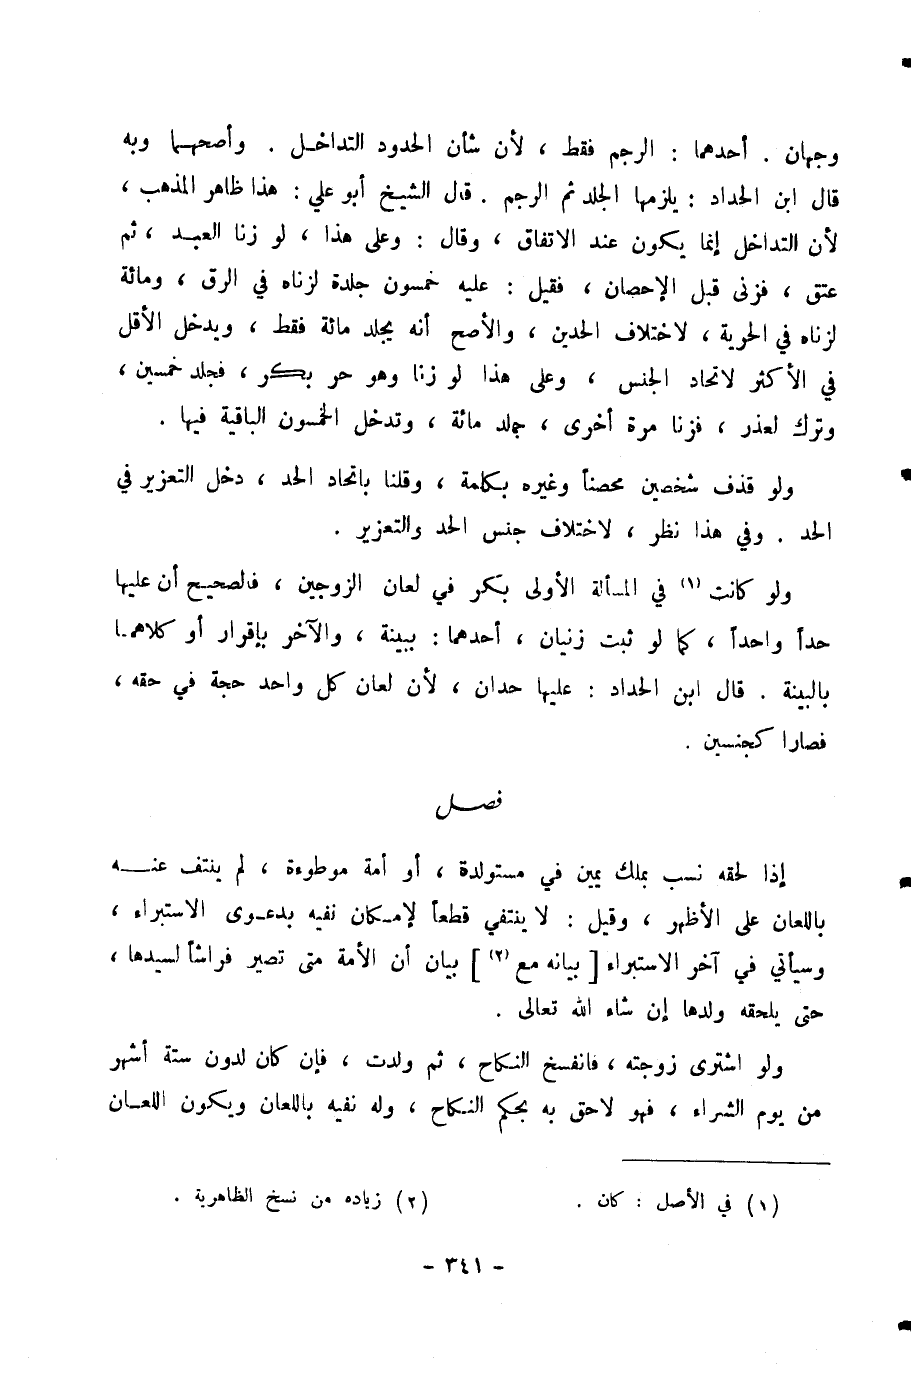 وجهان . أحدهما : الرجم فقط ، لأن شأن الحدود التداخل . وأصحهما وبه
قال ابن الحداد : يلزمها الجلد ثم الرجم . قال الشيخ أبو علي : هذا ظاهر المذهب ،
لأن التداخل إنما يكون عند الاتفاق ، وقال : وعلى هذا ، لو زنا العبد ، ثم
عتق ، فزنى قبل الإحصان ، فقيل : عليه خمسون جلدة لزناه في الرق ، ومائة
لزناه في الحرية ، لاختلاف الحدين ، والأصح أنه يجلد مائة فقط ، ويدخل الأقل
في الأكثر لاتحاد الجنس ، وعلى هذا لو زنا وهو حر بكر ، فجلد خمسين ،
وترك لعذر ، فزنا مرة أخرى ، جلد مائة ، وتدخل الخمسون الباقية فيها .
ولو قذف شخصين محصناً وغيره بكلمة ، وقلنا باتحاد الحد ، دخل التعزير في
الحد . وفي هذا نظر ، لاختلاف جنس الحد والتعزير .
ولو كانت (١) في المسألة الأولى بكر في لعان الزوجين ، فالصحيح أن عليها
حداً واحداً ، كما لو ثبت زنيان ، أحدهما : ببينة ، والآخر بإقرار أو كلاهما
بالبينة . قال ابن الحداد : عليها حدان ، لأن لعان كل واحد حجة في حقه ،
فصارا كجنسين .
فصل
إذا لحقه نسب بملك يمين في مستولدة ، أو أمة موطوءة ، لم ينتف عنه
باللعان على الأظهر ، وقيل : لا ينتفي قطعاً لإمكان نفيه بدعوى الاستبراء ،
وسيأتي في آخر الاستبراء [ بيانه مع (٢) ] بيان أن الأمة متى تصير فراشاً لسيدها ،
حتى يلحقه ولدها إن شاء الله تعالى .
ولو اشترى زوجته ، فانفسخ النكاح ، ثم ولدت ، فإن كان لدون ستة أشهر
من يوم الشراء ، فهو لاحق به بحكم النكاح ، وله نفيه باللعان ويكون اللعان
(١) في الأصل : كان . (٢) زياده من نسخ الظاهرية .
- ٣٤١ -